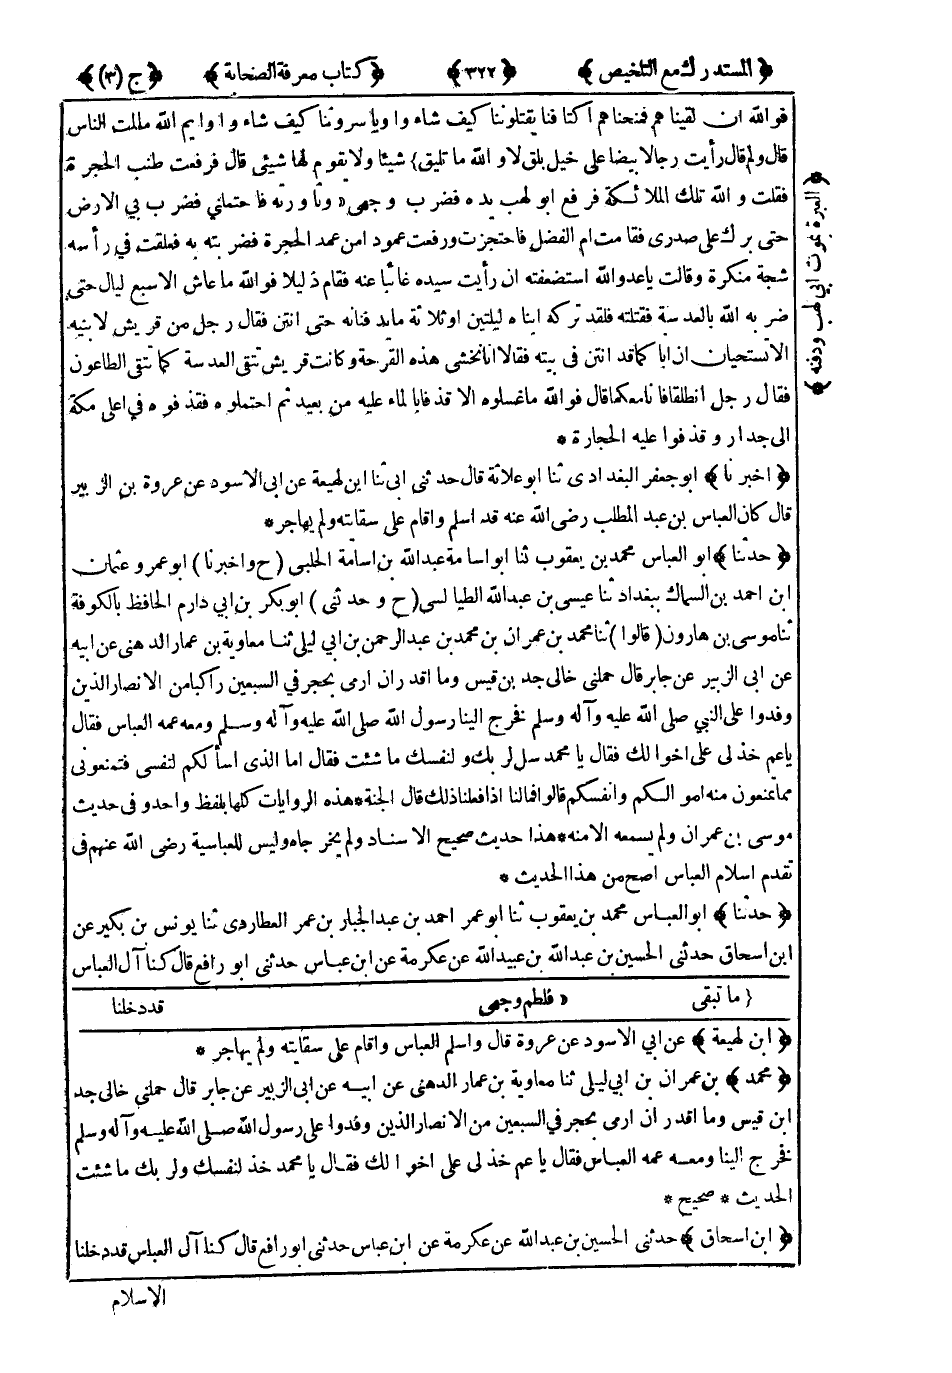 ﴿ المستدرك مع التلخيص ﴾ ﴿ ٣٢٢ ﴾ ﴿ كتاب معرفة الصحابة ﴾ ﴿ ج (٣) ﴾
فوالله ان لقيناهم فمنحناهم اكتافنا يقتلوننا كيف شاءوا وياسروننا كيف شاءوا وايم الله مالمت الناس
قال ولم قال رأيت رجالا بيضا على خيل بلق لا والله ما تليق} شيئا ولا يقوم لها شيئى قال فرفعت طنب الحجرة
فقلت والله تلك الملائكة فرفع ابو لهب يده فضرب وجهى « وثاورته فاحتملني فضرب بي الارض
حتى برك على صدرى فقامت ام الفضل فاحتجزت ورفعت عمودا من عمد الحجرة فضربته به فعلقت في رأسه
شجة منكرة وقالت ياعدو الله استضعفته ان رأيت سيده غائبا عنه فقام ذليلا فوالله ماعاش الاسبع ليال حتى
ضربه الله بالعدسة فقتلته فلقد تركه ابناه ليلتين اوثلاثة مايدفنانه حتى انتن فقال رجل من قريش لابنيه
الاتستحيان ان اباكما قد انتن فى بيته فقالا انا نخشى هذه القرحة وكانت قريش تتقى العدسة كما تتقى الطاعون
فقال رجل انطلقا فانا معكما قال فوالله ماغسلوه الا قذفا بالماء عليه من بعيد ثم احتملوه فقذفوه في اعلى مكة
الى جدار وقذفوا عليه الحجارة *
﴿ اخبرنا ﴾ ابوجعفر البغدادى ثنا ابوعلاثة قال حدثنى ابى ثنا ابن لهيعة عن ابى الاسود عن عروة بن الزبير
قال كان العباس بن عبد المطلب رضى الله عنه قد اسلم واقام على سقايته ولم يهاجر *
﴿ حدثنا ﴾ ابو العباس محمد بن يعقوب ثنا ابواسامة عبدالله بن اسامة الحلبى (ح واخبرنا) ابوعمرو عثمان
ابن احمد بن السماك ببغداد ثنا عيسى بن عبدالله الطيالسى (ح وحدثنى) ابوبكر بن ابي دارم الحافظ بالكوفة
ثنا موسى بن هارون (قالوا) ثنا محمد بن عمران بن محمد بن عبدالرحمن بن ابي ليلى ثنا معاوية بن عمار الدهنى عن ابيه
عن ابى الزبير عن جابر قال حملنى خالى جد بن قيس وما اقدر ان ارمى بحجر في السبعين راكبا من الانصار الذين
وفدوا على النبي صلى الله عليه وآله وسلم فخرج الينا رسول الله صلى الله عليه وآله وسلم ومعه عمه العباس فقال
ياعم خذ لى على اخوالك فقال يا محمد سل لربك ولنفسك ما شئت فقال اما الذى اسألكم لنفسى فتمنعونى
مما تمنعون منه اموالكم وانفسكم قالوا فمالنا اذا فعلنا ذلك قال الجنة * هذه الروايات كلها بلفظ واحد وفى حديث
موسى بن عمران ولم يسمعه الامنه * هذا حديث صحيح الاسناد ولم يخرجاه وليس للعباسية رضى الله عنهم فى
تقدم اسلام العباس اصح من هذا الحديث *
﴿ حدثنا ﴾ ابوالعباس محمد بن يعقوب ثنا ابوعمر احمد بن عبدالجبار بن عمر العطاردى ثنا يونس بن بكير عن
ابن اسحاق حدثنى الحسين بن عبدالله بن عبيدالله عن عكرمة عن ابن عباس حدثنى ابو رافع قال كنا آل العباس
﴿ العبرة بموت ابي لهب ودفنه ﴾
{ ما تبقى « فلطم وجهى قد دخلنا
﴿ ابن لهيعة ﴾ عن ابي الاسود عن عروة قال واسلم العباس واقام على سقايته ولم يهاجر *
﴿ محمد ﴾ بن عمران بن ابي ليلى ثنا معاوية بن عمار الدهنى عن ابيه عن ابى الزبير عن جابر قال حملنى خالى جد
ابن قيس وما اقدر ان ارمى بحجر في السبعين من الانصار الذين وفدوا على رسول الله صلى الله عليه وآله وسلم
فخرج الينا ومعه عمه العباس فقال ياعم خذ لى على اخوالك فقال يا محمد خذ لنفسك ولربك ما شئت
الحديث * صحيح *
﴿ ابن اسحاق ﴾ حدثنى الحسين بن عبدالله عن عكرمة عن ابن عباس حدثنى ابو رافع قال كنا آل العباس قد دخلنا
الاسلام